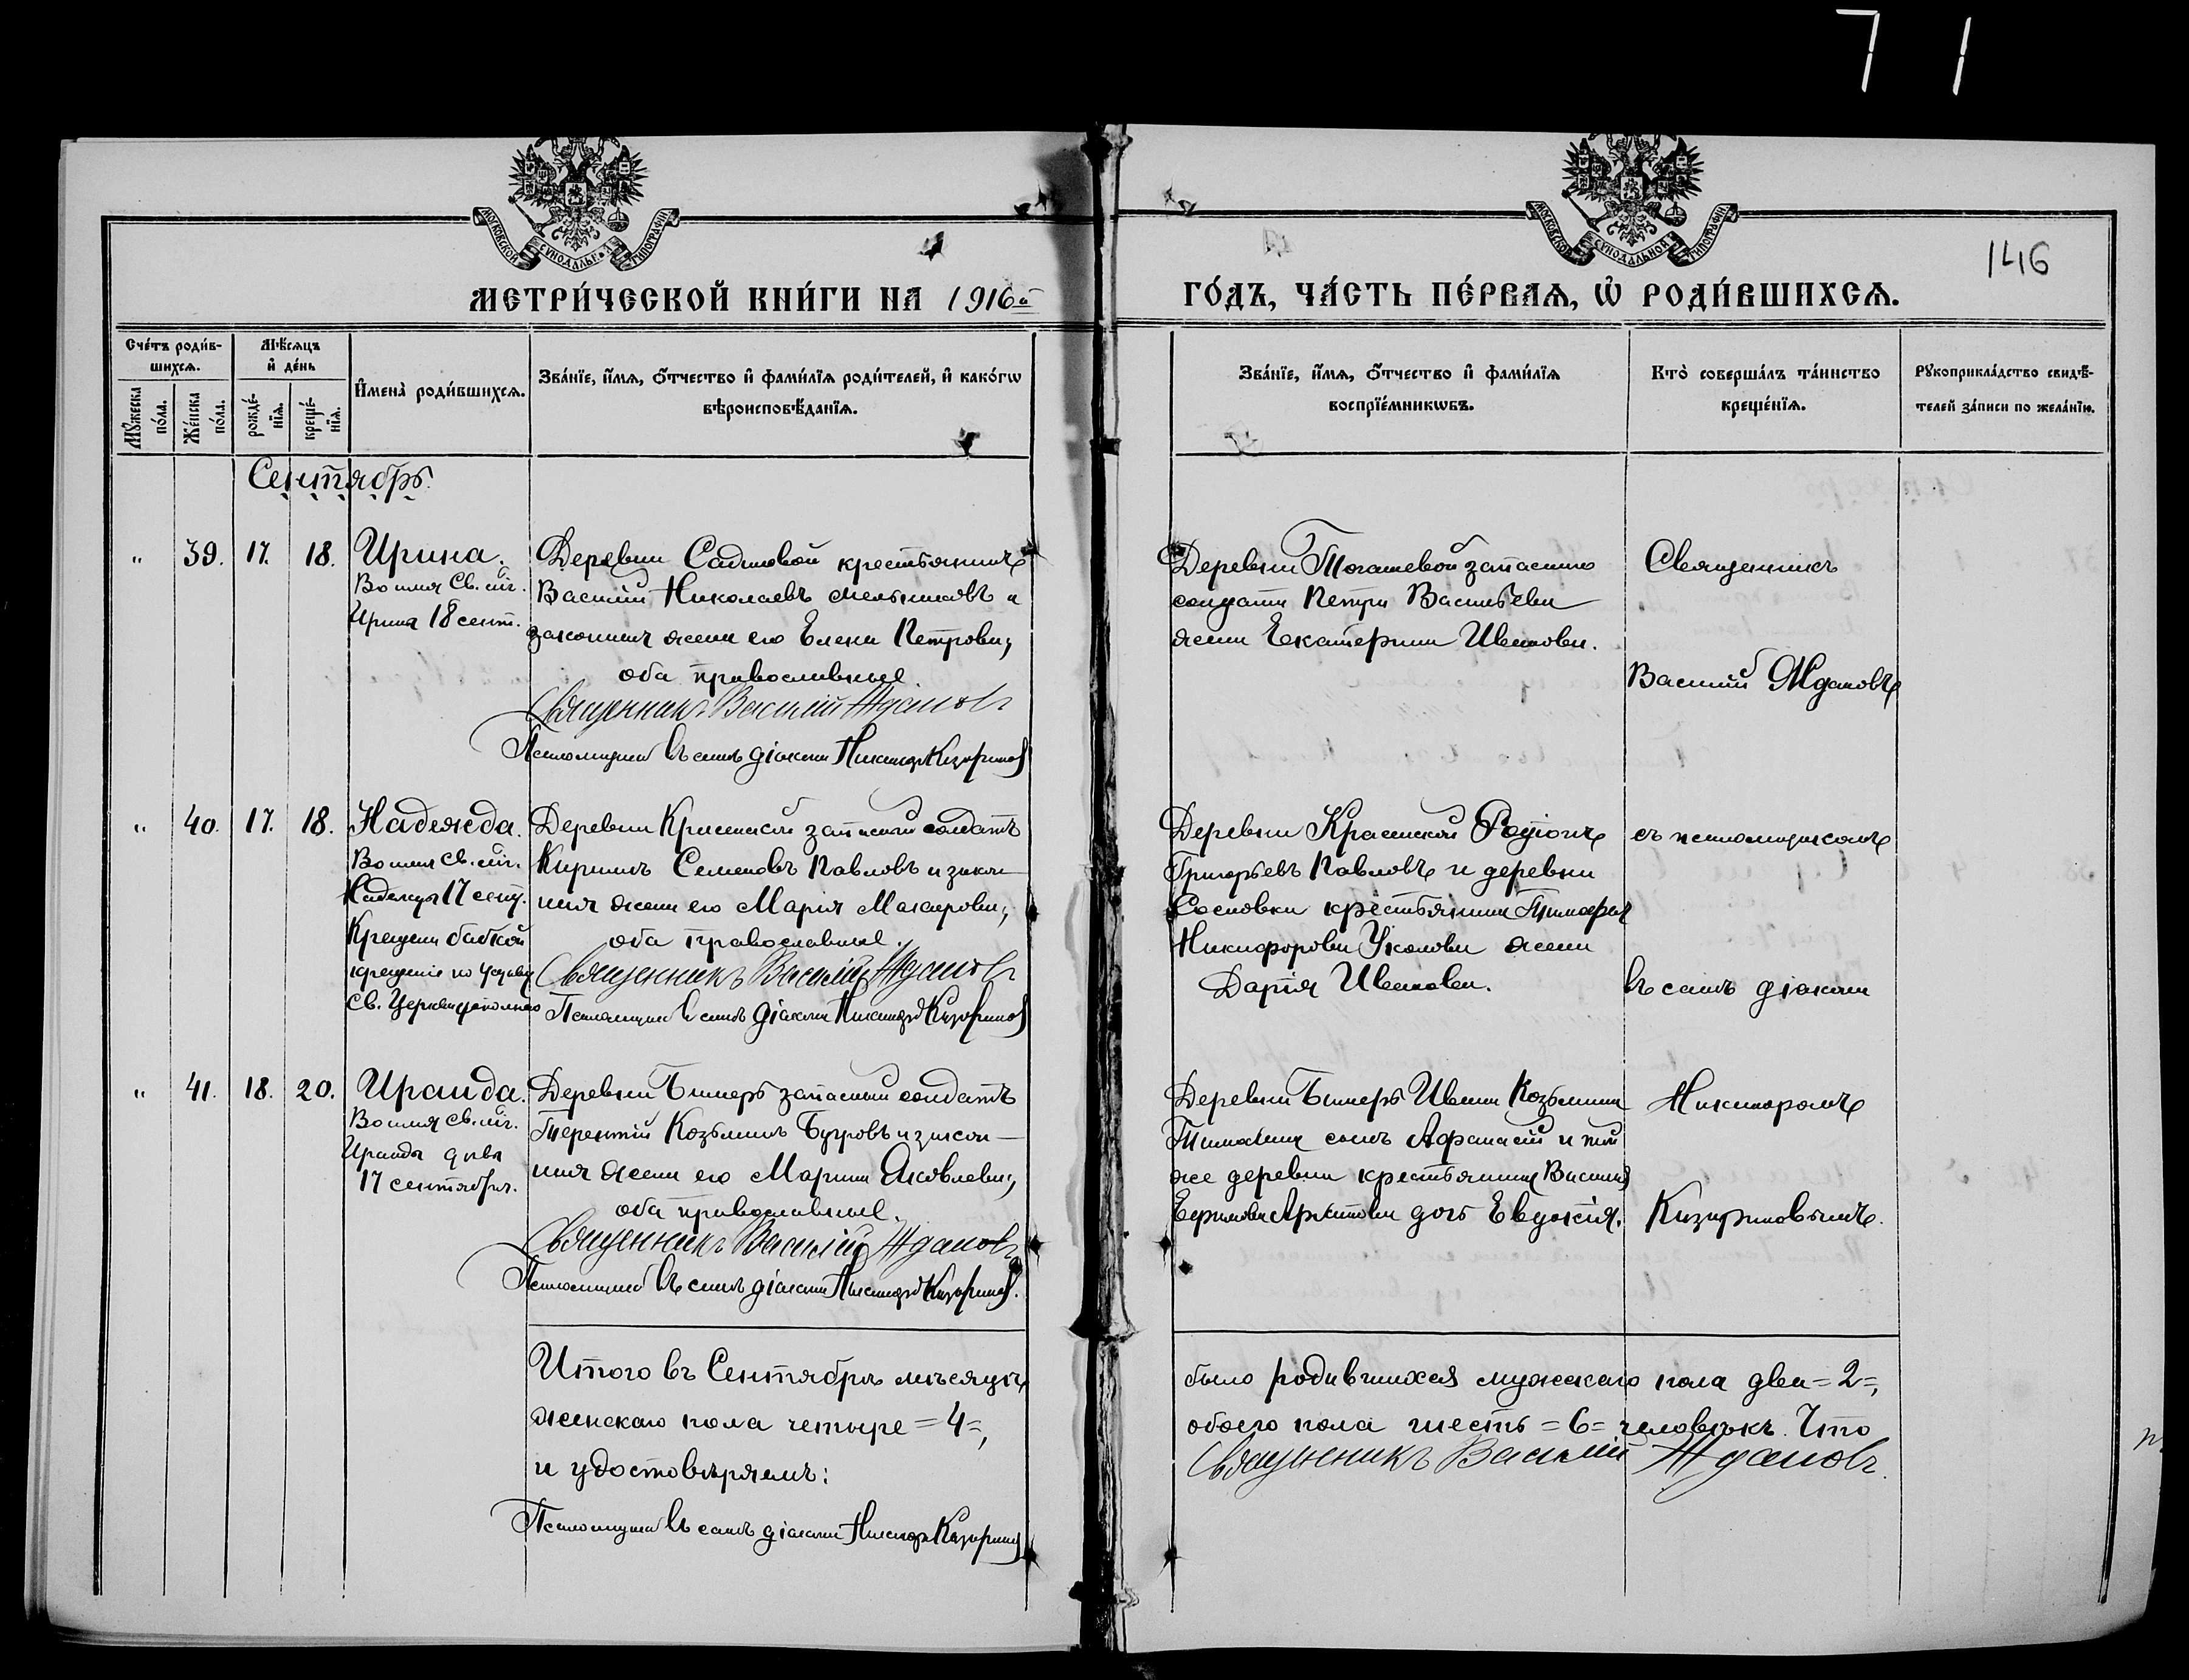 71
146
МОСКОВСКОЙ СѴНОДАЛЬНОЙ ТИПОГРАФІИ
МОСКОВСКОЙ СѴНОДАЛЬНОЙ ТИПОГРАФІИ
МЕТРИ́ЧЕСКОЙ КНИ́ГИ НА 1916й
ГО́ДЪ, ЧА́СТЬ ПЕ́РВАѦ, Ѡ҆ РОДИ́ВШИХСѦ.
Сче́тъ роди́в-
шихсѧ.
Мꙋ́жеска по́ла.
Же́нска по́ла.
Мѣ́сѧцъ
и҆ де́нь
рожде́-
нїѧ.
креще́-
нїѧ.
И҆мена̀ роди́вшихсѧ.
Зва́нїе, и҆́мѧ, ѻ҆́тчество и҆ фами́лїѧ роди́телей, и҆ како́гѡ
вѣроисповѣ́данїѧ.
Зва́нїе, и҆́мѧ, ѻ҆́тчество и҆ фами́лїѧ
воспрїе́мникѡвъ.
Кто̀ соверша́лъ та́инство
креще́нїѧ.
Рꙋкоприкла́дство свидѣ́-
телей за́писи по жела́нїю.
Сентябрь.
" 39. 17. 18. Ирина.
Во имя Св. мч.
Ирины 18 сент.
Деревни крестьянинъ
Василій Николаевъ Мельниковъ и
законная жена его Елена Петровна,
оба православные.
Священникъ Василій Ждановъ
Псаломщикъ въ санѣ діакона
Деревни запаснаго
солдата Петра Васильева
жена Екатерина Иванова.
Священникъ
Василій Ждановъ
" 40. 17. 18. Надежда.
Во имя Св. мч.
Надежды 17 сент.
Крещена бабкой
крещеніе по
Св. Церкви дополнено
Деревни запасный солдатъ
Кириллъ Семеновъ Павловъ и закон-
ная жена его Марія Макарова,
оба православные.
Священникъ Василій Ждановъ
Псаломщикъ въ санѣ діакона
Деревни Родіонъ
Григорьевъ Павловъ и деревни
Сосновки крестьянина Тимофея
Никифорова жена
Дарія Иванова.
съ псаломщикомъ
въ санѣ діакона
" 41. 18. 20. Ираида.
Во имя Св. мч.
Ираиды дѣвы
17 сентября.
Деревни Бимерь запасный солдатъ
Терентій Козьминъ и закон-
ная жена его Марина Яковлева,
оба православные.
Священникъ Василій Ждановъ
Псаломщикъ въ санѣ діакона
Деревни Бимерь Ивана Козьмина
сынъ Афанасій и той
же деревни крестьянина Василія
дочь Евдокія.
Никаноромъ
Итого въ Сентябрѣ мѣсяцѣ
было родившихся мужескаго пола два =2=,
женскаго пола четыре =4=,
обоего пола шесть =6= человѣкъ. Что
и удостовѣряемъ:
Священникъ Василій Ждановъ.
Псаломщикъ въ санѣ діакона